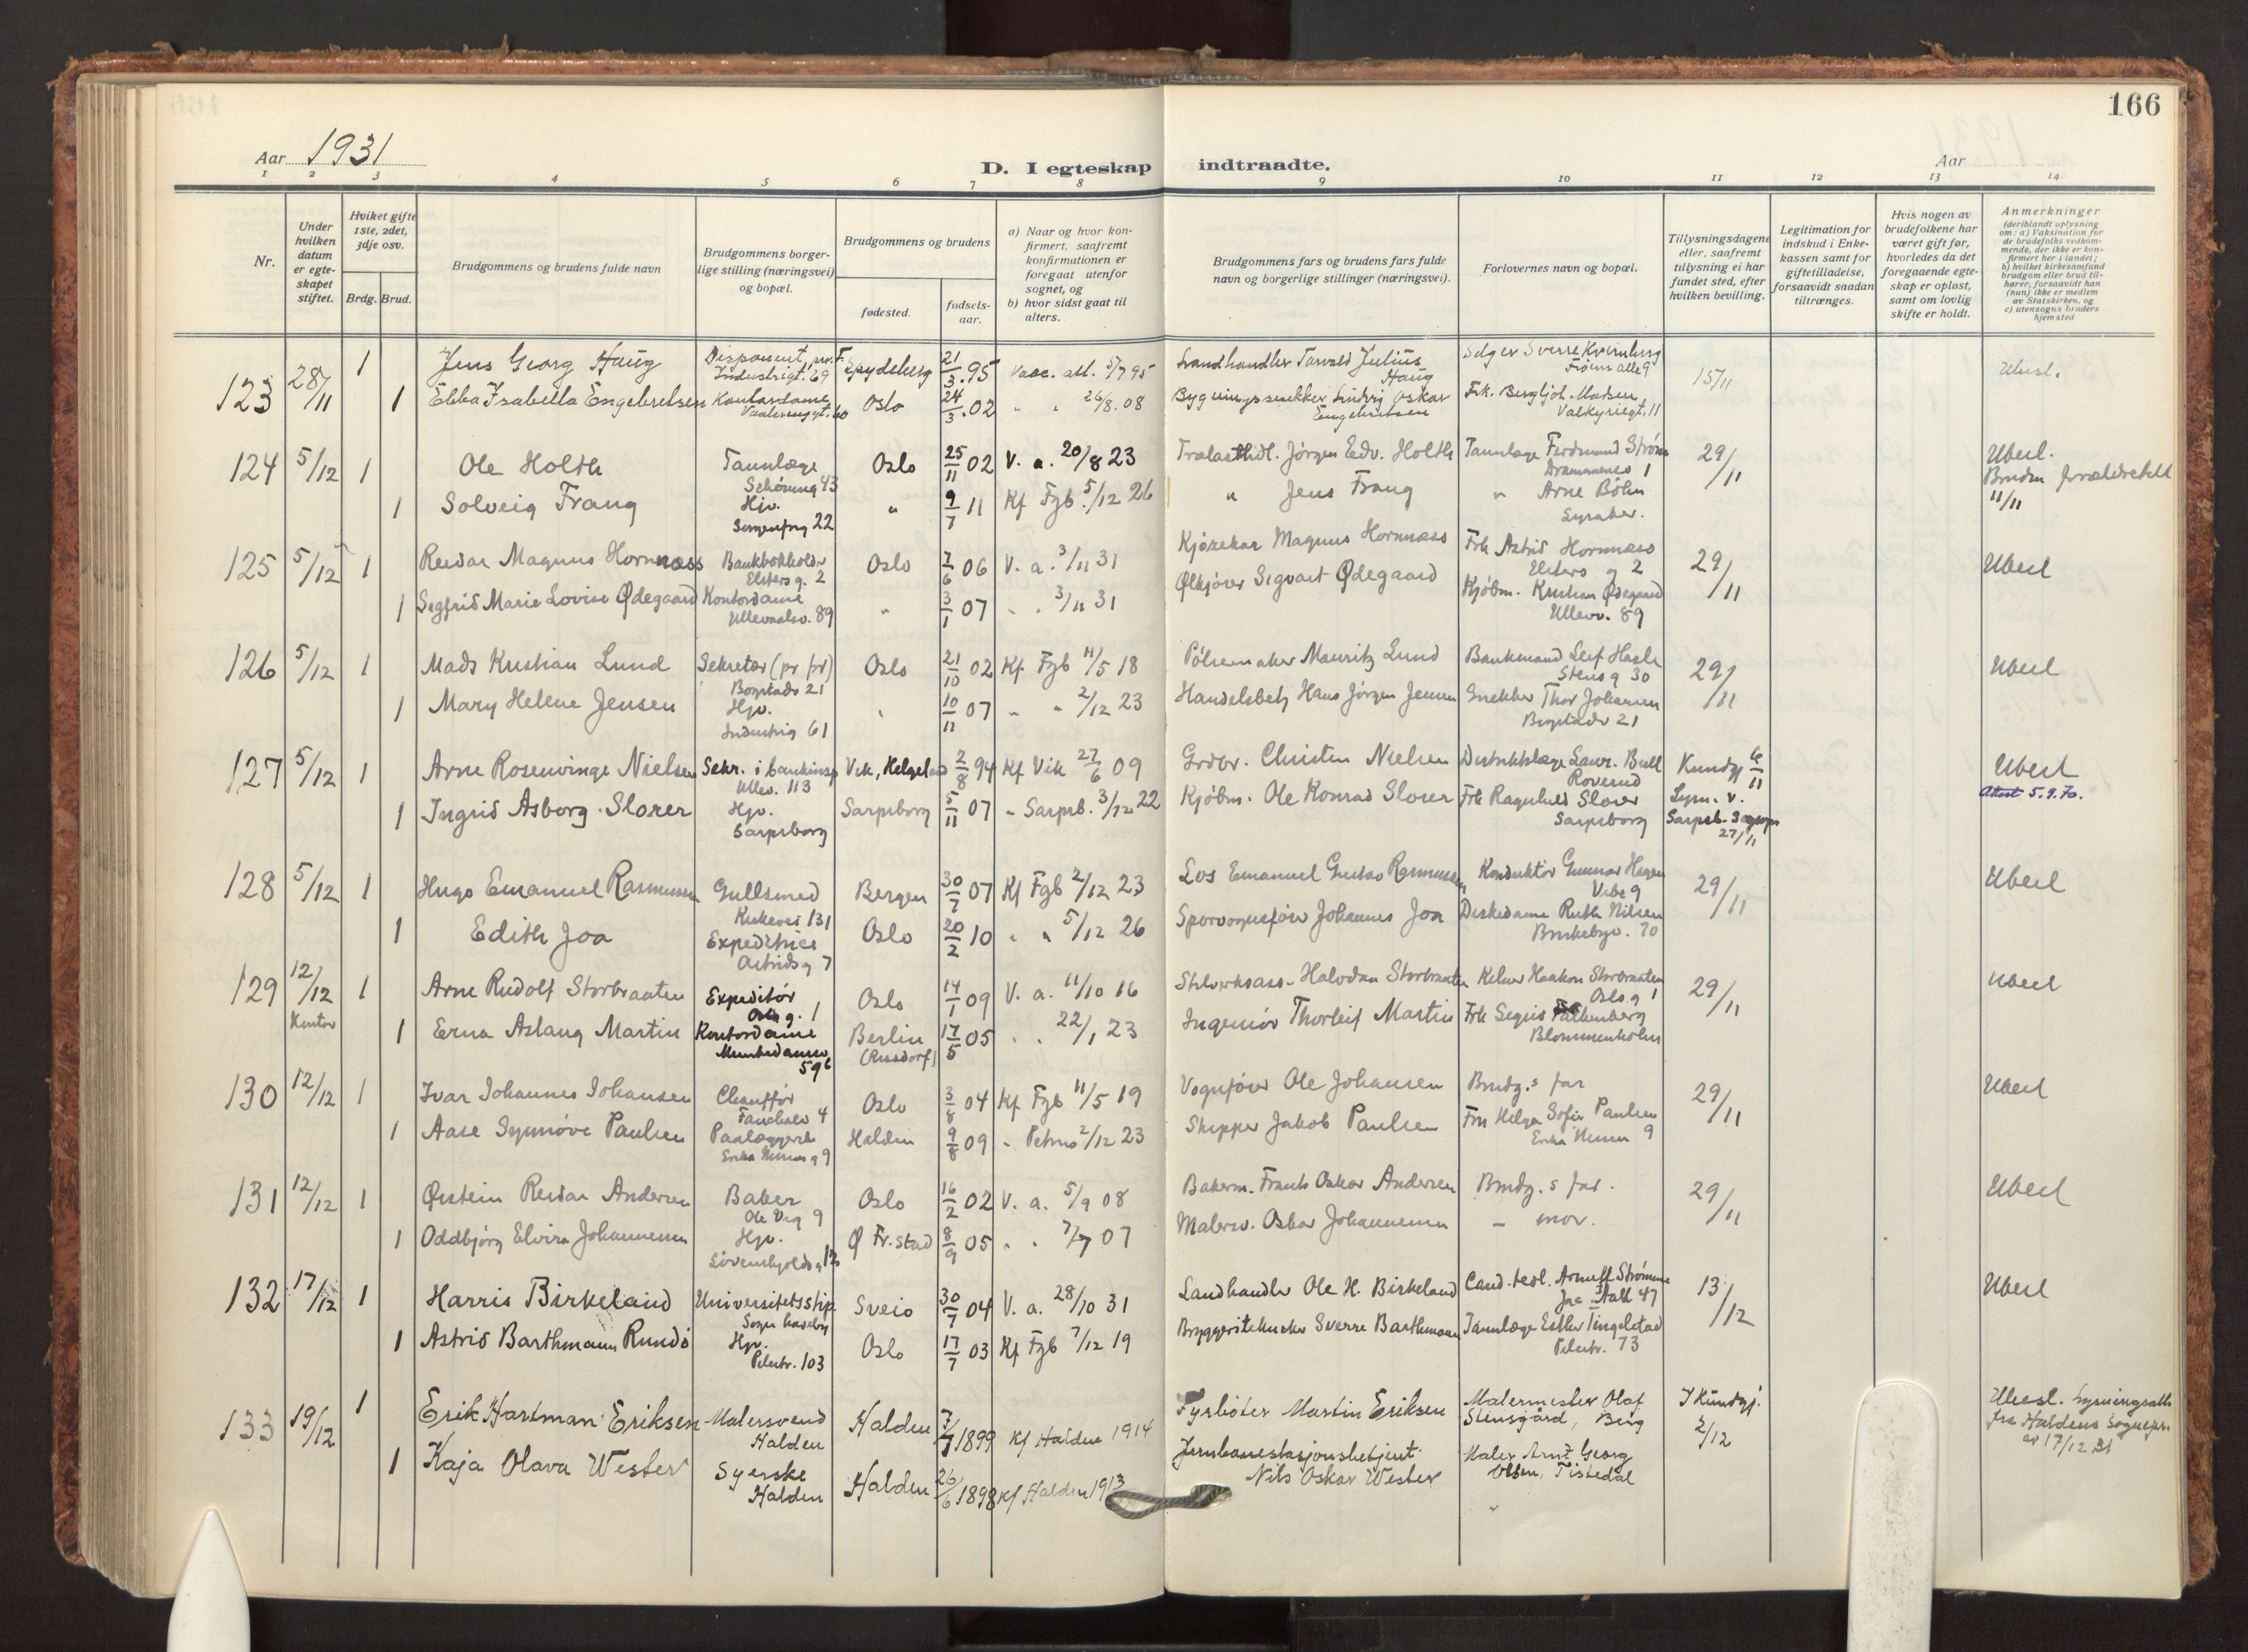 166
Aar 1931
D. I egteskap indtraadte.
Aar
1 2 3 4 5 6 7 8 9 10 11 12 13 14
Nr.
Under hvilken datum er egte-skapet stiftet.
Hvilket gifte 1ste, 2det, 3dje osv.
Brdg. Brud.
Brudgommens og brudens fulde navn
Brudgommens borger-lige stilling (næringsvei) og bopæl.
Brudgommens og brudens
fødested.
fødsels-aar.
a) Naar og hvor kon-firmert, saafremt konfirmationen er foregaat utenfor sognet, og
b) hvor sidst gaat til alters.
Brudgommens fars og brudens fars fulde navn og borgerlige stillinger (næringsvei).
Forlovernes navn og bopæl.
Tillysningsdagene eller, saafremt tillysning ei har fundet sted, efter hvilken bevilling.
Legitimation for indskud i Enke-kassen samt for giftetilladelse, forsaavidt saadan tiltrænges.
Hvis nogen av brudefolkene har været gift før, hvorledes da det foregaaende egte-skap er opløst, samt om lovlig skifte er holdt.
Anmerkninger (deriblandt oplysning om: a) Vaksination for de brudefolks vedkom-mende, der ikke er kon-firmert her i landet; b) hvilket kirkesamfund brudgom eller brud til-hører, forsaavidt han (hun) ikke er medlem av Statskirken, og c) utensogns bruders hjemsted
123 28/11 1 Jens Georg Haug Disponent, Industrigt. 69 Spydeberg 21/3.95 Vacc. att. 5/7 95 Landhandler Torvald Julius Haug Selger Sverre Kvimberg 15/11 Ubesl.
1 Ebba Isabella Engebretsen Kontordame Vaalerenggt. 60 Oslo 24/3.02 " " 26/8.08 Bygningssnekker Ludvig Oskar Engebretsen Frk. Bergljot Madsen Valkyriegt. 11
124 5/12 1 Ole Holth Tannlæge Schøning 43 Oslo 25/11 02 V. a. 20/8 23 Trælasthdl. Jørgen Edv. Holth Tannlæge Ferdinand Strøm Drammensv 1 29/11 Ubesl.
1 Solveig Frang Hjv. Sorgenfrig 22 " 9/7 11 Kf Fgb. 5/12 26 " Jens Frang " Arne Böhn Bruden forældreløs 11/11
125 5/12 1 Reidar Magnus Hornnæss Bankbokholder Elsters g. 2 Oslo 7/6 06 V. a. 3/11 31 Kjørekar Magnus Hornnæss Frk Astrid Hornnæss Elsters g 2 29/11 Ubesl
1 Sigfrid Marie Lovise Ødegaard Kontordame Ullevaalsv. 89 " 3/1 07 " " 3/11 31 Ølkjører Sigvart Ødegaard Kjøbm. Kristian Ødegaard Ullevv. 89
126 5/12 1 Mads Kristian Lund Sekretær (pr fr) Bogstadv 21 Oslo 21/10 02 Kf Fgb 11/5 18 Pølsemaker Mauritz Lund Bankmand Leif Hasle Stens g 30 29/11 Ubesl
1 Mary Helene Jensen Hjv. Industrig 61 " 10/11 07 " " 2/12 23 Handelsbetj Hans Jørgen Jensen Snekker Thor Johansen Bogstadv 21
127 5/12 1 Arne Rosenvinge Nielsen Sekr. i bankinsp Ullev. 113 Vik, Helgeland 2/8 94 Kf Vik 27/6 09 Grdbr. Christen Nielsen Distriktslæge Laur. Bull Roverud Kundgj 6/11 Ubesl
Attest 5.9.70.
1 Ingrid Asborg Slorer Hjv. Sarpsborg Sarpsborg 5/11 07 " Sarpsb. 3/12 22 Kjøbm. Ole Konrad Slorer Frk Ragnhild Slorer Sarpsborg Lysn. v. Sarpsb. Sogepr 27/11
128 5/12 1 Hugo Emanuel Rasmussen Gullsmed Kirkevei 131 Bergen 30/7 07 Kf Fgb 2/12 23 Los Emanuel Gustav Rasmussen Konduktør Gunnar Hagen Vibe g 29/11 Ubesl
1 Edith Joa Expeditrice Astrids g 7 Oslo 20/2 10 " " 5/12 26 Sporvognsfører Johannes Joa Diskedame Ruth Nilsen Briskebyv. 70
129 12/12 Kontor 1 Arne Rudolf Storbraaten Expeditør Oslo g. 1 Oslo 14/1 09 V. a. 11/10 16 Halvdan Storbraaten Kelner Haakon Storbraaten Oslo g 1 29/11 Ubesl
1 Erna Aslaug Martin Kontordame Munkedamsv 59b Berlin (Russdorf) 17/5 05 " " 22/1 23 Ingeniør Thorleif Martin Frk Sigrid Falkenberg Blommenholm
130 12/12 1 Ivar Johannes Johansen Chauffør 4 Oslo 3/8 04 Kf Fgb 11/5 19 Vognfører Ole Johansen Brudg.s far 29/11 Ubesl
1 Aase Synnøve Paulsen Paalæggerske 9 Halden 9/8 09 " Petrus 2/12 23 Skipper Jakob Paulsen Fru Helga Sofie Paulsen 9
131 12/12 1 Øistein Reidar Andersen Baker Ole Vig 9 Oslo 16/2 02 V. a. 5/9 08 Bakerm. Frants Oskar Andersen Brudg. s far. 29/11 Ubesl
1 Oddbjørg Elvira Johannessen Hjv. Sørenskjolds g 12 Ø Fr.stad 8/9 05 " " 7/7 07 Malersv. Oskar Johannessen – mor.
132 17/12 1 Harris Birkeland Universitetsstip. Sogn haveby Sveio 30/7 04 V. a. 28/10 31 Landhandler Ole H. Birkeland Cand. teol. Strømme Jac Aall 47 13/12 Ubesl
1 Astrid Barthmann Rundö Hjv. Pilestr. 103 Oslo 17/7 03 Kf Fgb 7/12 19 Bryggeritekniker Sverre Barthmann Tannlæge Esther Tingelstad Pilestr. 73
133 19/12 1 Erik Hartman Eriksen Malersvend Halden Halden 7/7 1899 Kf Halden 1914 Fyrbøter Martin Eriksen Malermester Olaf Stensgård, Berg I Kundgj. 2/12 Ubesl. Lysningsatt. fra Haldens Sognepr. av 17/12 31
1 Kaja Olava Wester Syerske Halden Halden 26/6 1898 Kf Halden 1913 Jernbanestasjonsbetjent Nils Oskar Wester Maler Arnt Georg Olsen, Tistedal